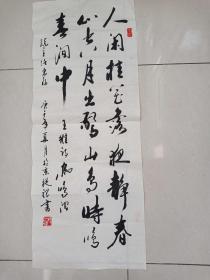 人闲桂花落夜静春
山空月出惊山鸟时鸣
春涧中
王维诗鸟鸣涧
庚子年夏月於京城书